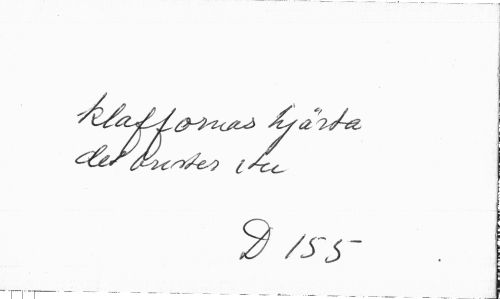 klaffornas hjärta
det brister itu
D 155